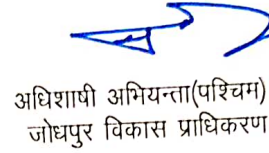 अधिशाषी अभियन्ता(पश्चिम)
जोधपुर विकास प्राधिकरण